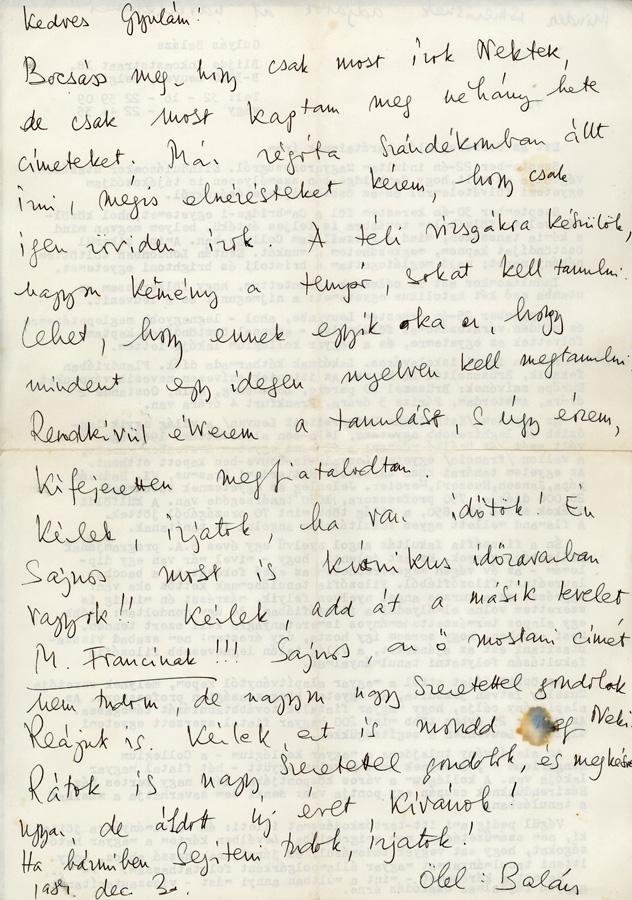 Kedves Gyulám!
Bocsáss meg, hogy csak most írok Nektek,
de csak most kaptam meg néhány hete
címeteket. Már régóta szándékomban állt
írni, mégis elnézésteket kérem, hogy csak
igen röviden írok. A téli vizsgákra készülök,
nagyon kemény a tempó, sokat kell tanulni.
Lehet, hogy ennek egyik oka az, hogy
mindent egy idegen nyelven kell megtanulni.
Rendkívül élvezem a tanulást, s úgy érzem,
kifejezetten megfiatalodtam.
Kérlek, írjatok, ha van időtök! Én
sajnos most is krónikus időzavarban
vagyok!! Kérlek, add át a másik levelet
M. Francinak!!! Sajnos, az ő mostani címét
nem tudom, de nagyon nagy szeretettel gondolok
Reájuk is. Kérlek, ezt is mondd meg Neki.
Rátok is nagy szeretettel gondolok, és
de áldott új évet kívánok!
Ha bármiben segíteni tudok, írjatok!
dec 3.
Ölel: Balázs